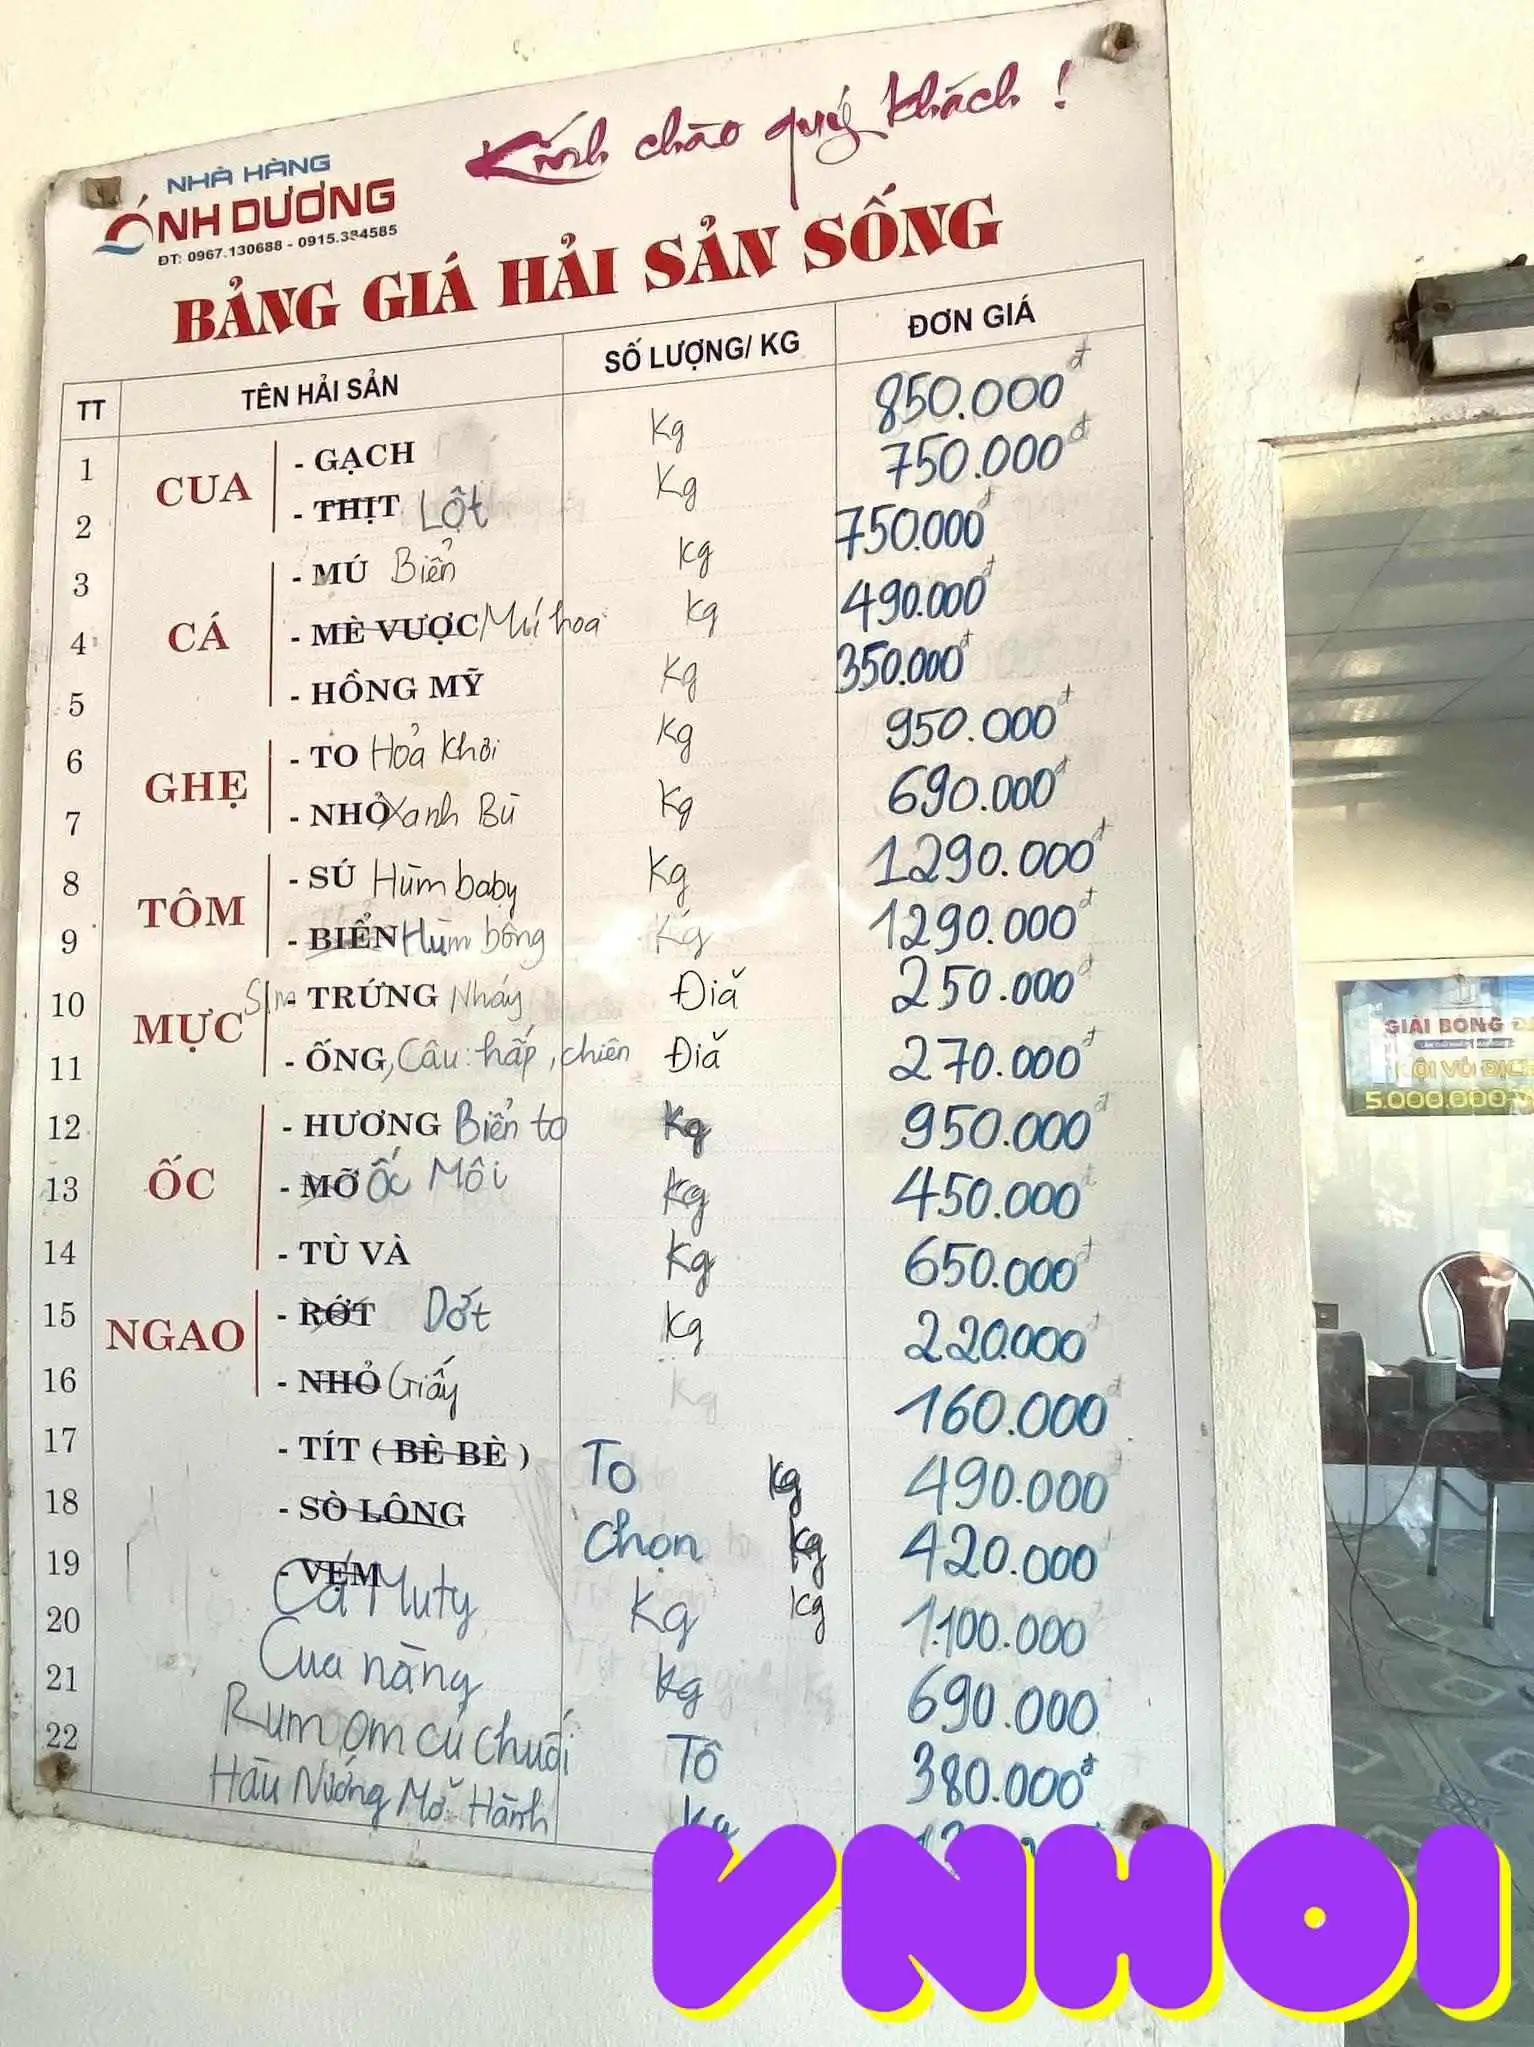 Kính chào quý khách !
NHÀ HÀNG
ÁNH DƯƠNG
ĐT: 0967.130688 - 0915.334585
BẢNG GIÁ HẢI SẢN SỐNG
TT TÊN HẢI SẢN SỐ LƯỢNG/ KG ĐƠN GIÁ
CUA
1 - GẠCH Kg 850.000đ
2 - THỊT Lột Kg 750.000đ
CÁ
3 - MÚ Biển Kg 750.000đ
4 - MÈ VƯỢC Mú hoa Kg 490.000đ
5 - HỒNG MỸ Kg 350.000đ
GHẸ
6 - TO Hoả Khơi Kg 950.000đ
7 - NHỎ Xanh Bù Kg 690.000đ
TÔM
8 - SÚ Hùm baby Kg 1290.000đ
9 - BIỂN Hùm bông Kg 1290.000đ
MỰC
10 Sim - TRỨNG Nháy Đĩa 250.000đ
11 - ỐNG, Câu: hấp, chiên Đĩa 270.000đ
ỐC
12 - HƯƠNG Biển to Kg 950.000đ
13 - MỠ Ốc Môi Kg 450.000đ
14 - TÙ VÀ Kg 650.000đ
NGAO
15 - RỚT Dớt Kg 220.000đ
16 - NHỎ Giấy Kg 160.000đ
17 - TÍT ( BÈ BÈ ) To Kg 490.000đ
18 - SÒ LÔNG Chọn Kg 420.000
19 - VẸM Cá Muty Kg Kg 1.100.000
20 Cua nàng Kg 690.000
21 Rum om củ chuối Tô 380.000đ
22 Hàu Nướng Mỡ Hành Kg
GIẢI BÓNG
5.000.000
VNHOI